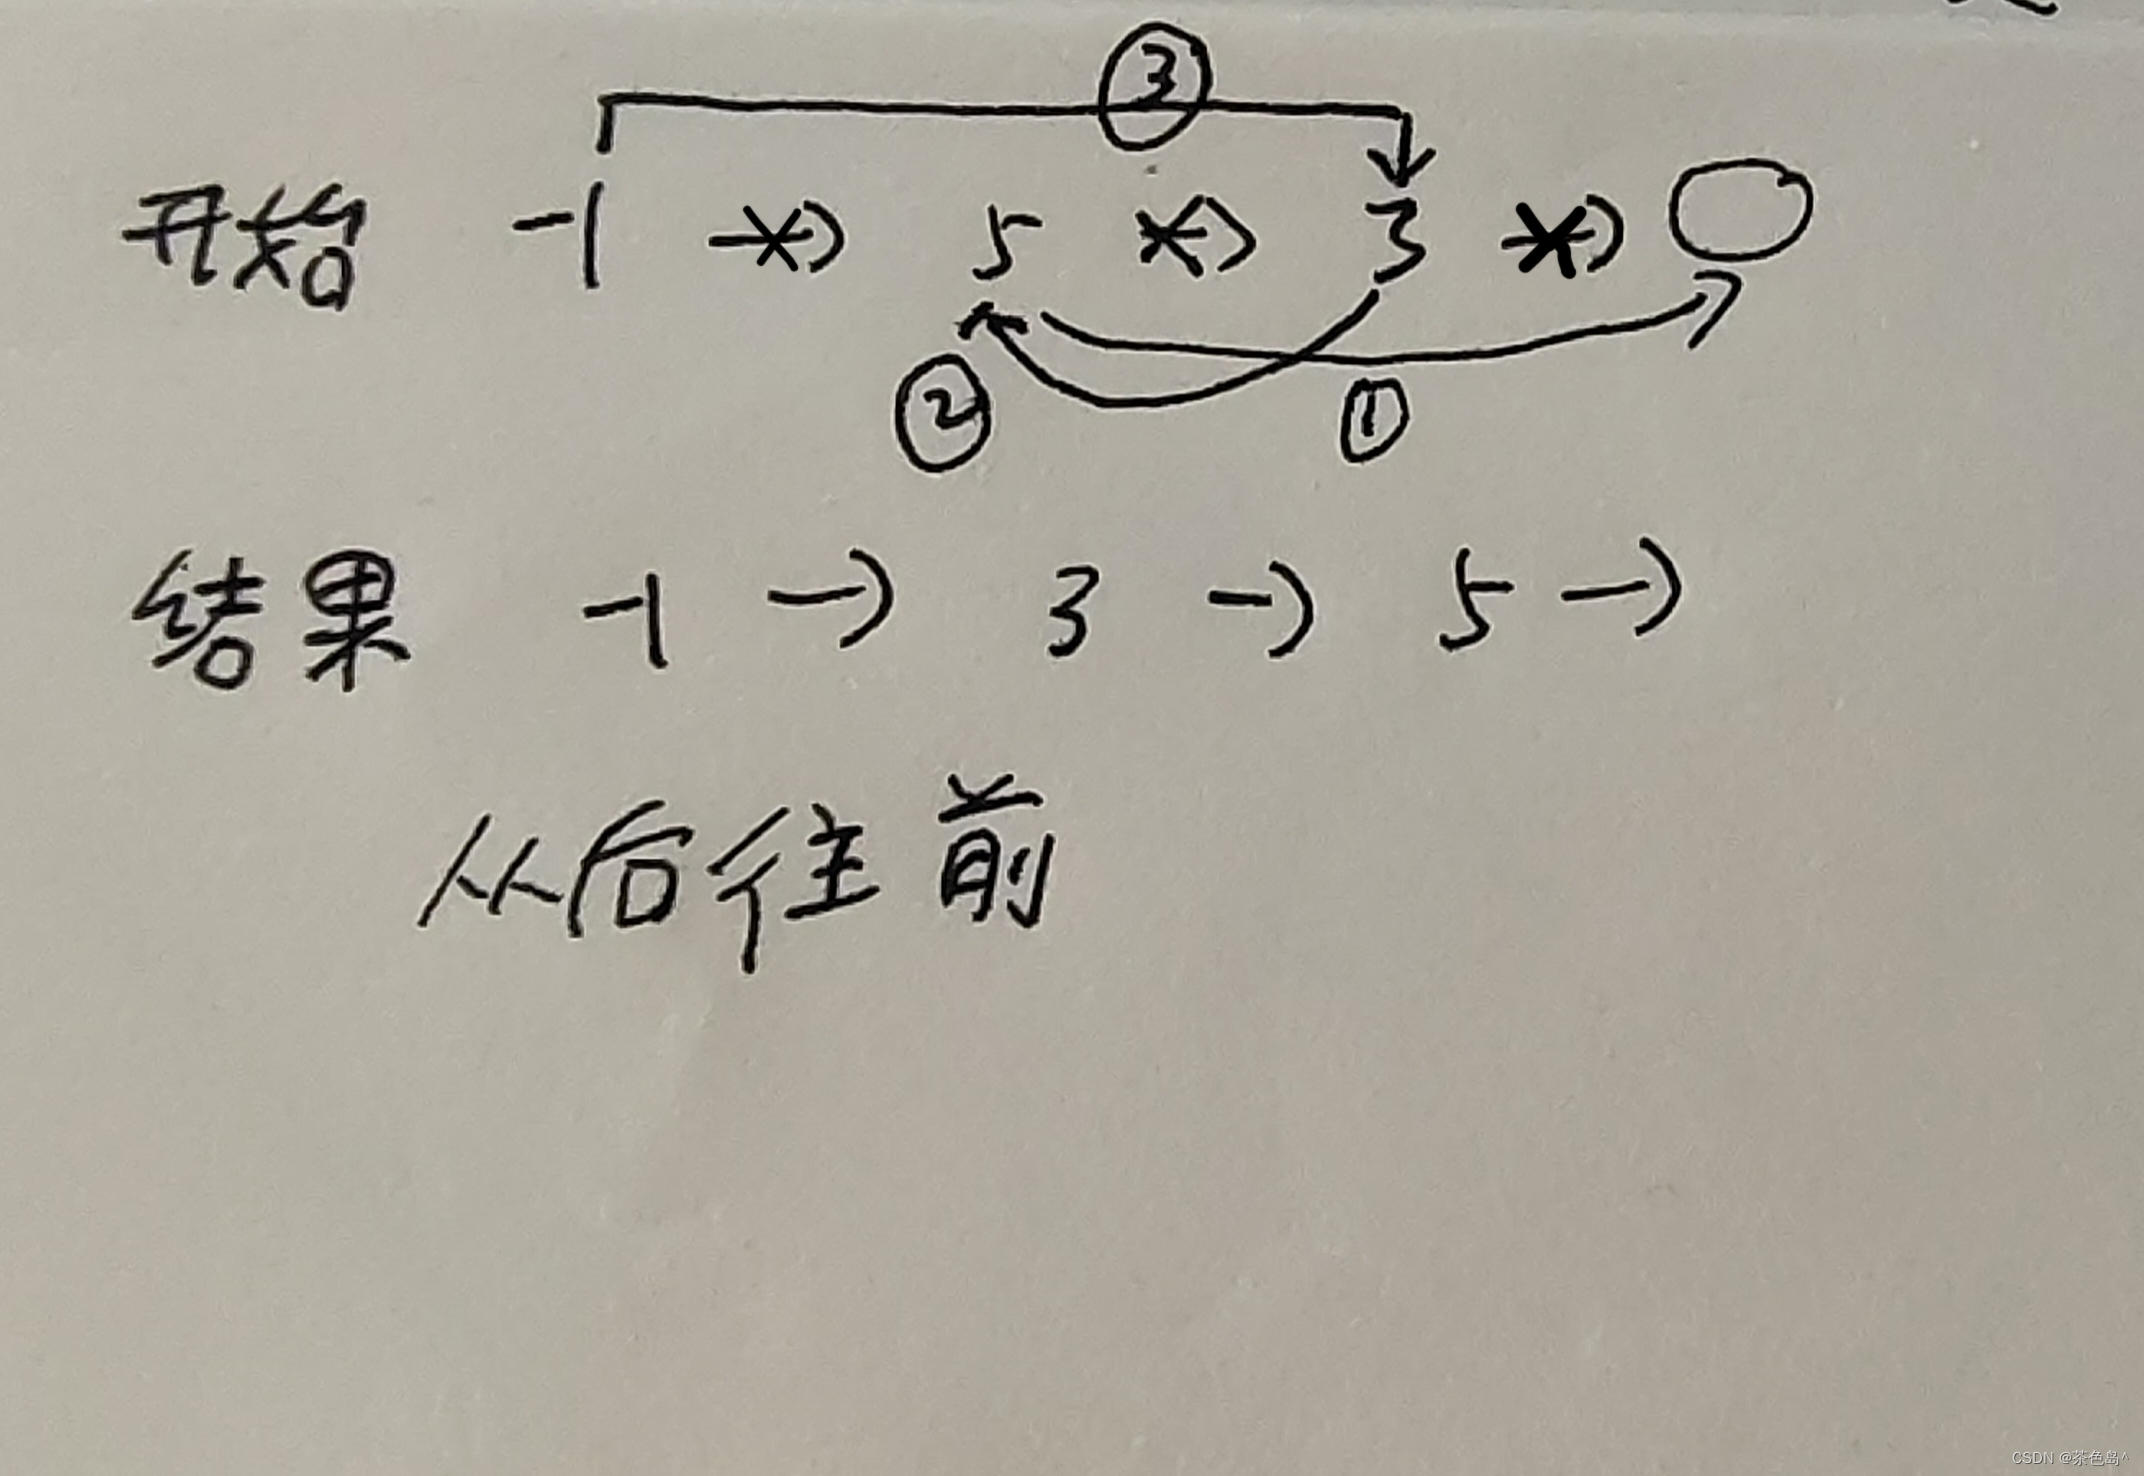 ③
开始 -1 → 5 → 3 →
② ①
结果 -1 → 3 → 5 →
从后往前
CSDN @茶色岛^